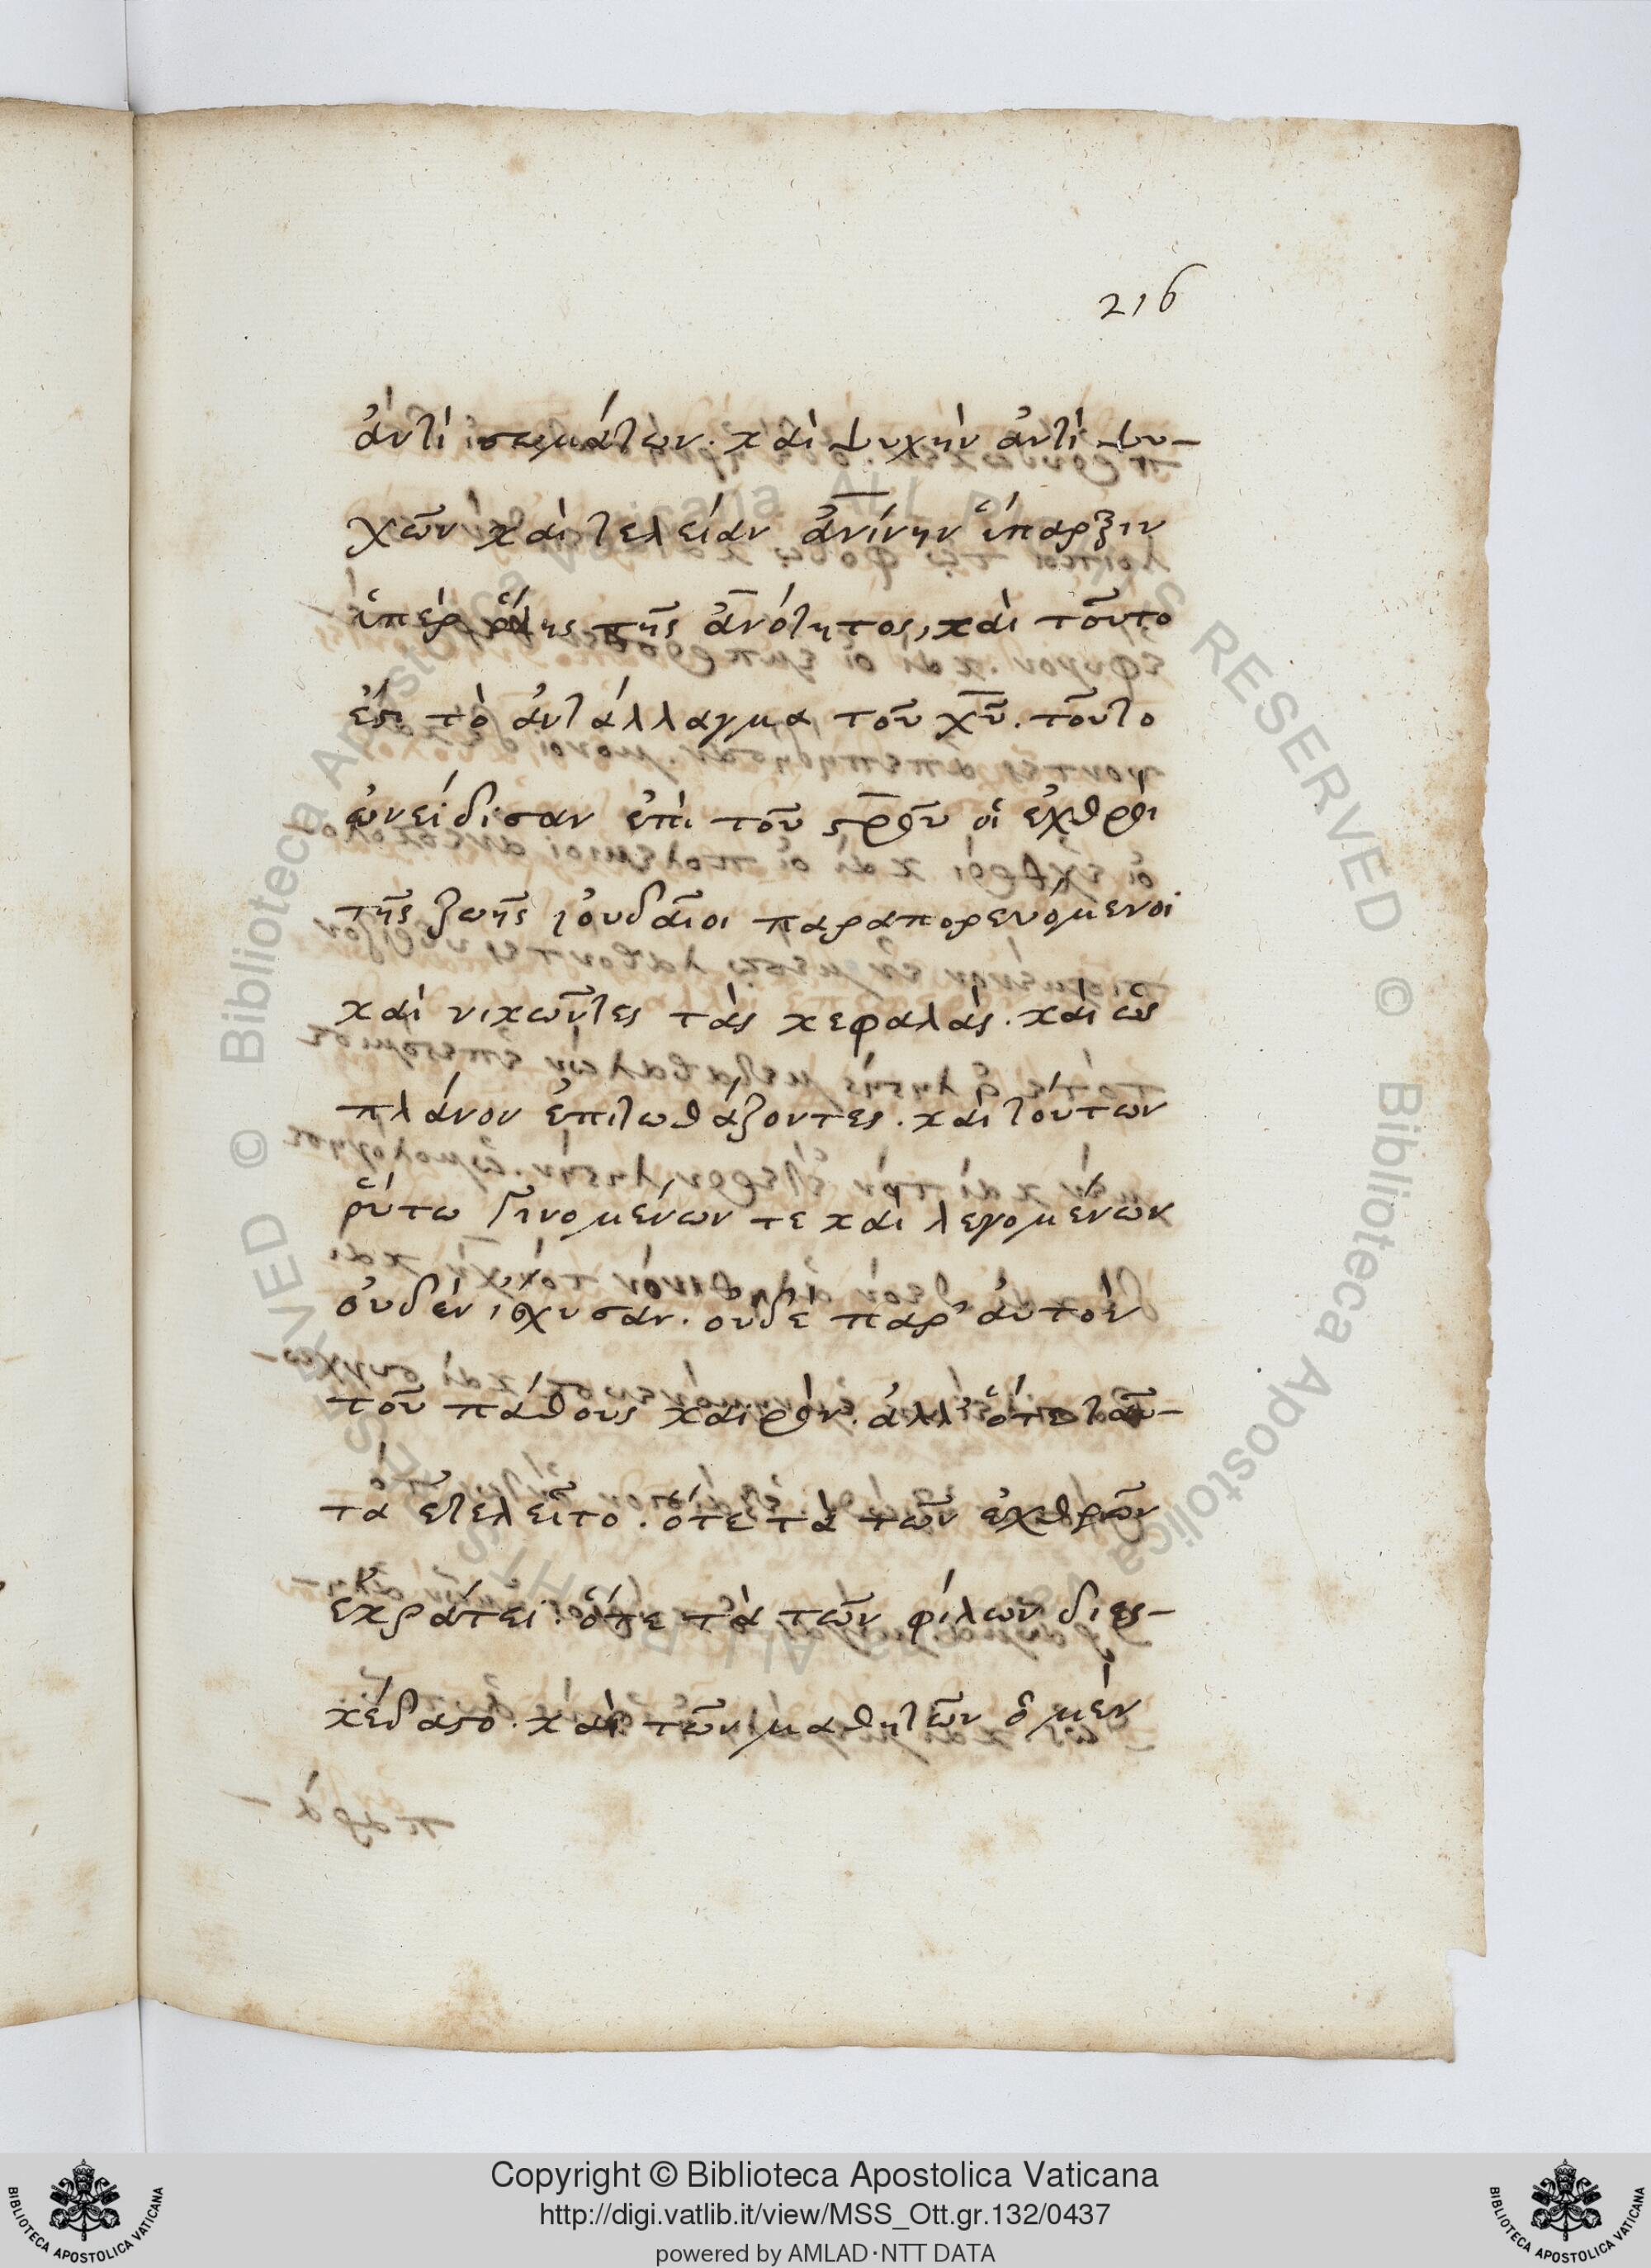 216
ἀντὶ σωμάτων· καὶ ψυχὴν ἀντὶ ψυ-
χῶν καὶ τελείαν ἀνίνην ὕπαρξιν
ὑπὲρ ὅλης τῆς ἀνότητος, καὶ τοῦτο
ἐστι τὸ ἀντάλλαγμα τοῦ χῦ. τοῦτο
ὠνείδισαν ἐπὶ τοῦ στροῦ οἱ ἐχθροὶ
τῆς ζωῆς ἰουδαῖοι παραπορευόμενοι
καὶ νικῶντες τὰς κεφαλάς. καὶ ὡς
πλάνον ἐπιτωθάζοντες. καὶ τούτων
οὕτω γινομένων τε καὶ λεγομένων
οὐδὲν ἴσχυσαν. οὐδὲ παρ' αὐτὸν
τοῦ πάθους καιρὸν. ἀλλ' ὅτε ταῦ-
τα ἐτελεῖτο. ὅτε τὰ τῶν ἐχθρῶν
ἐκράτει. ὅτε τὰ τῶν φίλων διεσ-
κέδαστο. καὶ τῶν μαθητῶν ὁ μὲν
Copyright © Biblioteca Apostolica Vaticana
http://digi.vatlib.it/view/MSS_Ott.gr.132/0437
powered by AMLAD·NTT DATA
BIBLIOTECA APOSTOLICA VATICANA
BIBLIOTECA APOSTOLICA VATICANA